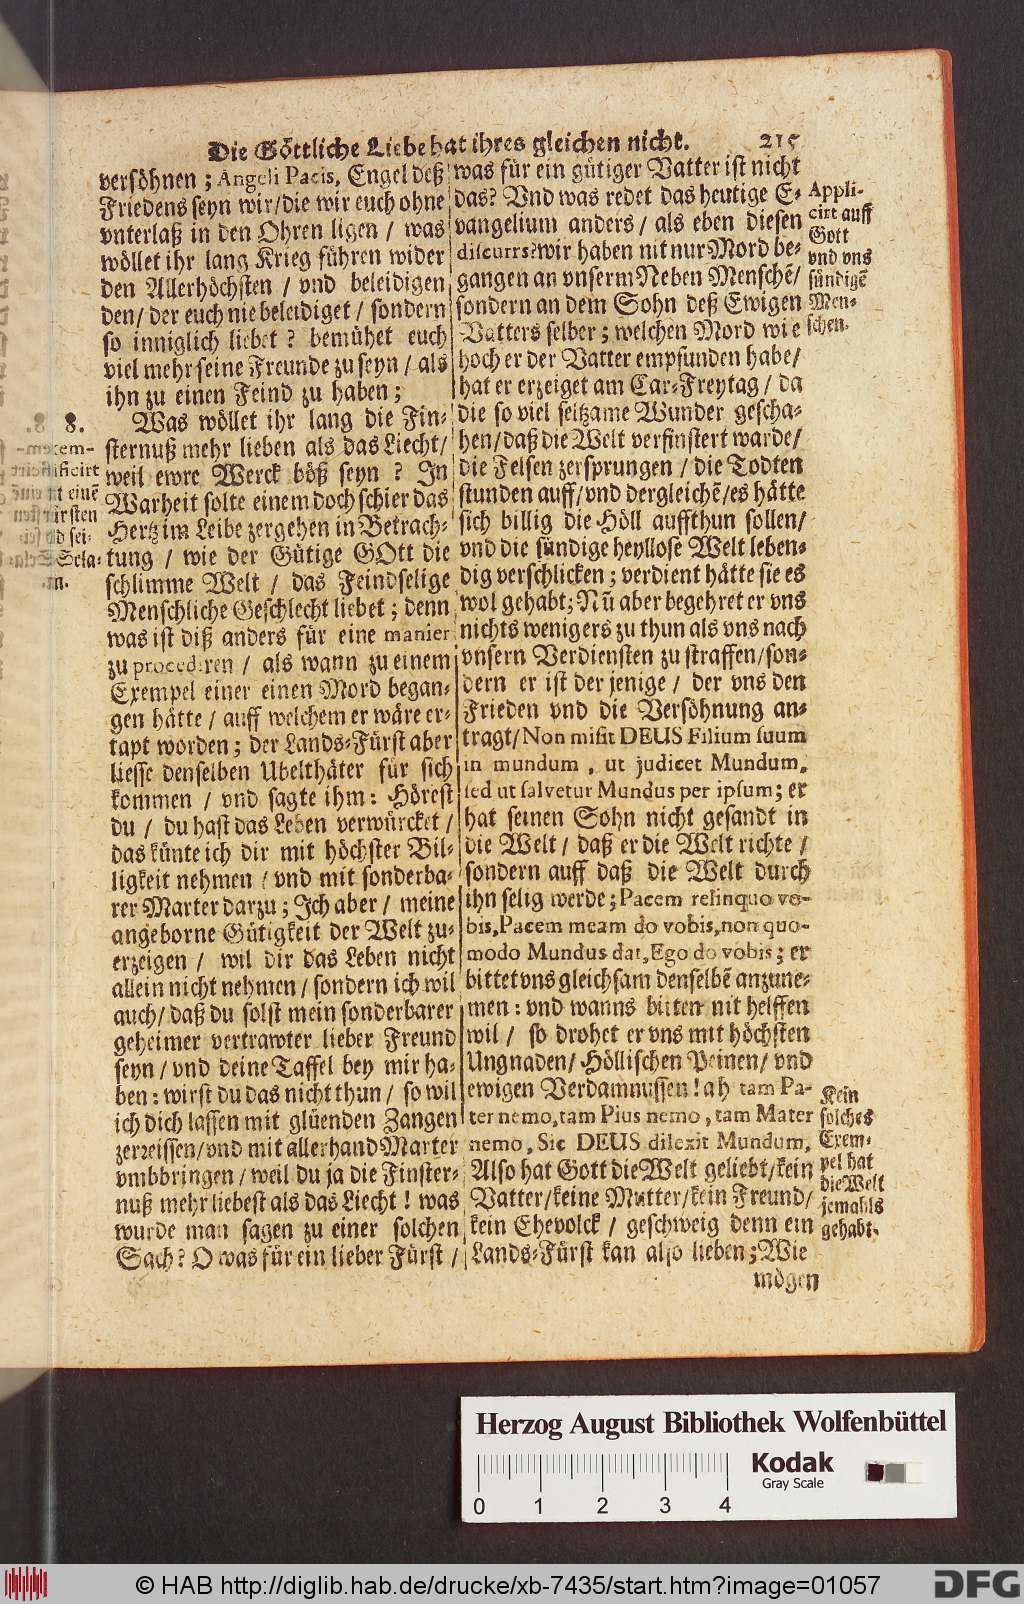 Die Göttliche Liebe hat ihres gleichen nicht. 215
versöhnen; Angeli Pacis, Engel deß
Friedens seyn wir/die wir euch ohne
vnterlaß in den Ohren ligen / was
wöllet ihr lang Krieg führen wider
den Allerhöchsten / vnd beleidigen
den/ der euch nie beleidiget / sondern
so inniglich liebet? bemühet euch
viel mehr seine Freunde zu seyn / als
ihn zu einen Feind zu haben;
8.
Was wöllet ihr lang die Fin-
sternuß mehr lieben als das Liecht/
weil ewre Werck böß seyn? In
Warheit solte einem doch schier das
Hertz im Leibe zergehen in Betrach-
tung / wie der Gütige GOtt die
schlimme Welt / das Feindselige
Menschliche Geschlecht liebet; denn
was ist diß anders für eine manier
zu procediren / als wann zu einem
Exempel einer einen Mord began-
gen hätte / auff welchem er wäre er-
tapt worden; der Lands-Fürst aber
liesse denselben Ubelthäter für sich
kommen / vnd sagte ihm: Hörest
du / du hast das Leben verwürcket /
das künte ich dir mit höchster Bil-
ligkeit nehmen / vnd mit sonderba-
rer Marter darzu; Ich aber / meine
angeborne Gütigkeit der Welt zu-
erzeigen / wil dir das Leben nicht
allein nicht nehmen / sondern ich wil
auch/ daß du solst mein sonderbarer
geheimer vertrawter lieber Freund
seyn / vnd deine Taffel bey mir ha-
ben: wirst du das nicht thun / so wil
ich dich lassen mit glüenden Zangen
zerreissen/vnd mit allerhand Marter
vmbbringen / weil du ja die Finster-
nuß mehr liebest als das Liecht! was
wurde man sagen zu einer solchen
Sach? O was für ein lieber Fürst /
was für ein gütiger Vatter ist nicht
das? Vnd was redet das heutige E-
vangelium anders / als eben diesen
discurrs? wir haben nit nur Mord be-
gangen an vnserm Neben Menschē/
sondern an dem Sohn deß Ewigen
Vatters selber; welchen Mord wie
hoch er der Vatter empfunden habe/
hat er erzeiget am Car-Freytag / da
die so viel seltzame Wunder gescha-
hen/ daß die Welt verfinstert warde/
die Felsen zersprungen / die Todten
stunden auff/ vnd dergleichē/es hätte
sich billig die Höll auffthun sollen/
vnd die sündige heyllose Welt leben-
dig verschlicken; verdient hätte sie es
wol gehabt; Nū aber begehret er vns
nichts wenigers zu thun als vns nach
vnsern Verdiensten zu straffen/son-
dern er ist der jenige / der vns den
Frieden vnd die Versöhnung an-
tragt/ Non misit DEUS Filium suum
in mundum, ut judicet Mundum,
sed ut salvetur Mundus per ipsum; er
hat seinen Sohn nicht gesandt in
die Welt / daß er die Welt richte /
sondern auff daß die Welt durch
ihn selig werde; Pacem relinquo vo-
bis, Pacem meam do vobis, non quo-
modo Mundus dat, Ego do vobis; er
bittet vns gleichsam denselbē anzune-
men: vnd wanns bitten nit helffen
wil / so drohet er vns mit höchsten
Ungnaden/ Höllischen Peinen/ vnd
ewigen Verdamnussen! ah tam Pa-
ter nemo, tam Pius nemo, tam Mater
nemo, Sic DEUS dilexit Mundum,
Also hat Gott die Welt geliebt/kein
Vatter/keine Mutter/kein Freund/
kein Ehevolck / geschweig denn ein
Lands-Fürst kan also lieben; Wie
mögen
Appli-
cirt auff
Gott
vnd vns
sündigē
Men-
schen.
Kein
solches
Exem-
pel hat
die Welt
jemahls
gehabt.
Herzog August Bibliothek Wolfenbüttel
Kodak
Gray Scale
0 1 2 3 4
© HAB http://diglib.hab.de/drucke/xb-7435/start.htm?image=01057
DFG